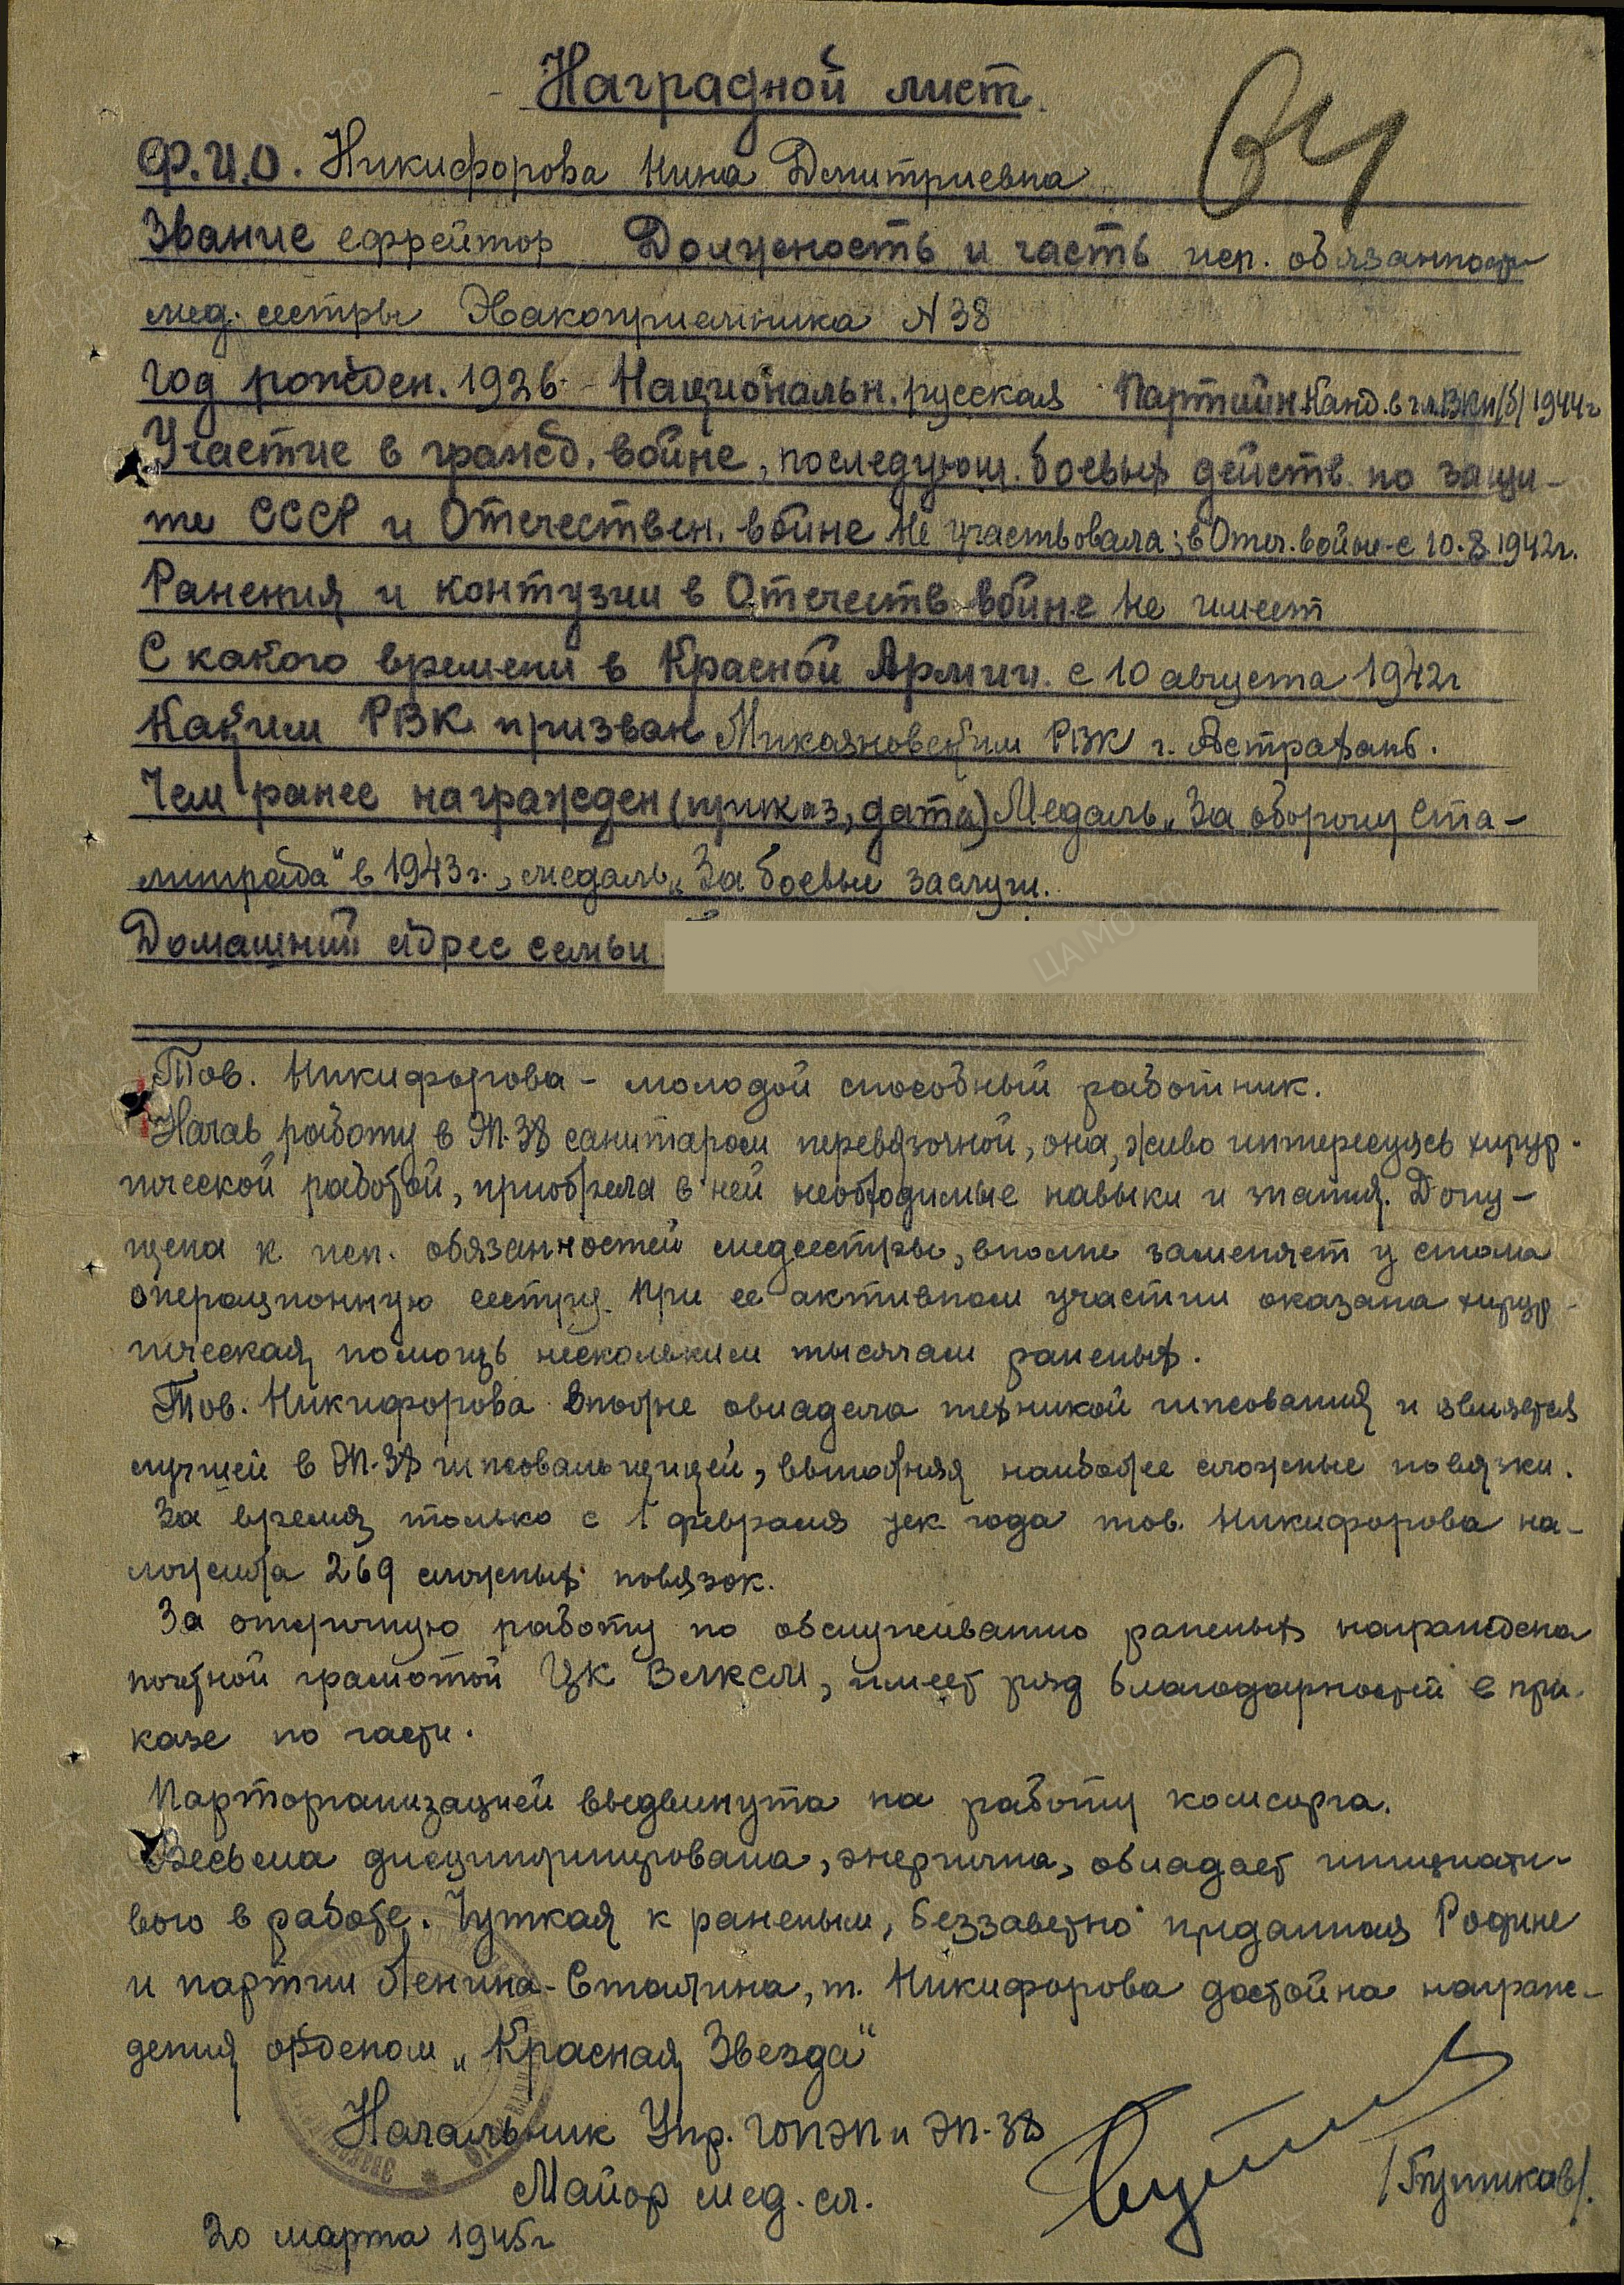 Наградной лист.
Ф.И.О. Никифорова Нина Дмитриевна
Звание ефрейтор Должность и часть исп. обязанност
мед. сестры Эвакоприемника N 38
Год рожден. 1926 - Национальн. русская Партийн Канд. в чл. ВКП/б/ 1944г
Участие в гражд. войне, последующ. боевых действ. по защи-
те СССР и Отечествен. войне Не участвовала; в Отеч. войне-с 10.8.1942г.
Ранения и контузии в Отечеств войне Не имеет
С какого времени в Красной Армии. с 10 августа 1942г
Каким РВК призван Микояновским РВК г. Астрахань.
Чем ранее награжден (приказ, дата) Медаль „За оборону Ста-
линграда" в 1943г., медаль „За боевые заслуги.
Домашний адрес семьи
Тов. Никифорова - молодой способный работник.
Начав работу в ЭП-38 санитаром перевязочной, она, живо интересуясь хирур-
гической работой, приобрела в ней необходимые навыки и знания. Допу-
щена к исп. обязанностей медсестры, вполне заменяет у стола
операционную сестру. При ее активном участии оказана хирур-
гическая помощь нескольким тысячам раненых.
Тов. Никифорова вполне овладела техникой гипсования и является
лучшей в ЭП-38 гипсовальщицей, выполняя наиболее сложные повязки.
За время только с 1 февраля тек. года тов. Никифорова на-
ложила 269 сложных повязок.
За отличную работу по обслуживанию раненых награждена
почетной грамотой ЦК ВЛКСМ, имеет ряд благодарностей в при-
казе по части.
Парторганизацией выдвинута на работу комсорга.
Весьма дисциплинирована, энергична, обладает инициати-
вою в работе. Чуткая к раненым, беззаветно преданная Родине
и партии Ленина-Сталина, т. Никифорова достойна награж-
дения орденом „Красная Звезда"
Начальник Упр. ГОПЭП и ЭП-38
Майор мед. сл. /Бутиков/.
20 марта 1945г